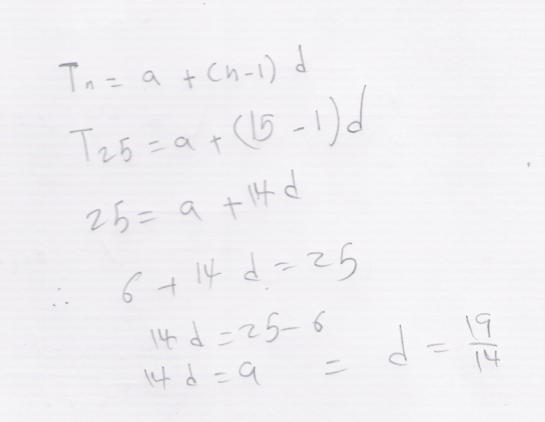 Tn = a + (n-1) d
T25 = a + (15 - 1) d
25 = a + 14 d
∴ 6 + 14 d = 25
14 d = 25 - 6
14 d = 9 = d = 19/14